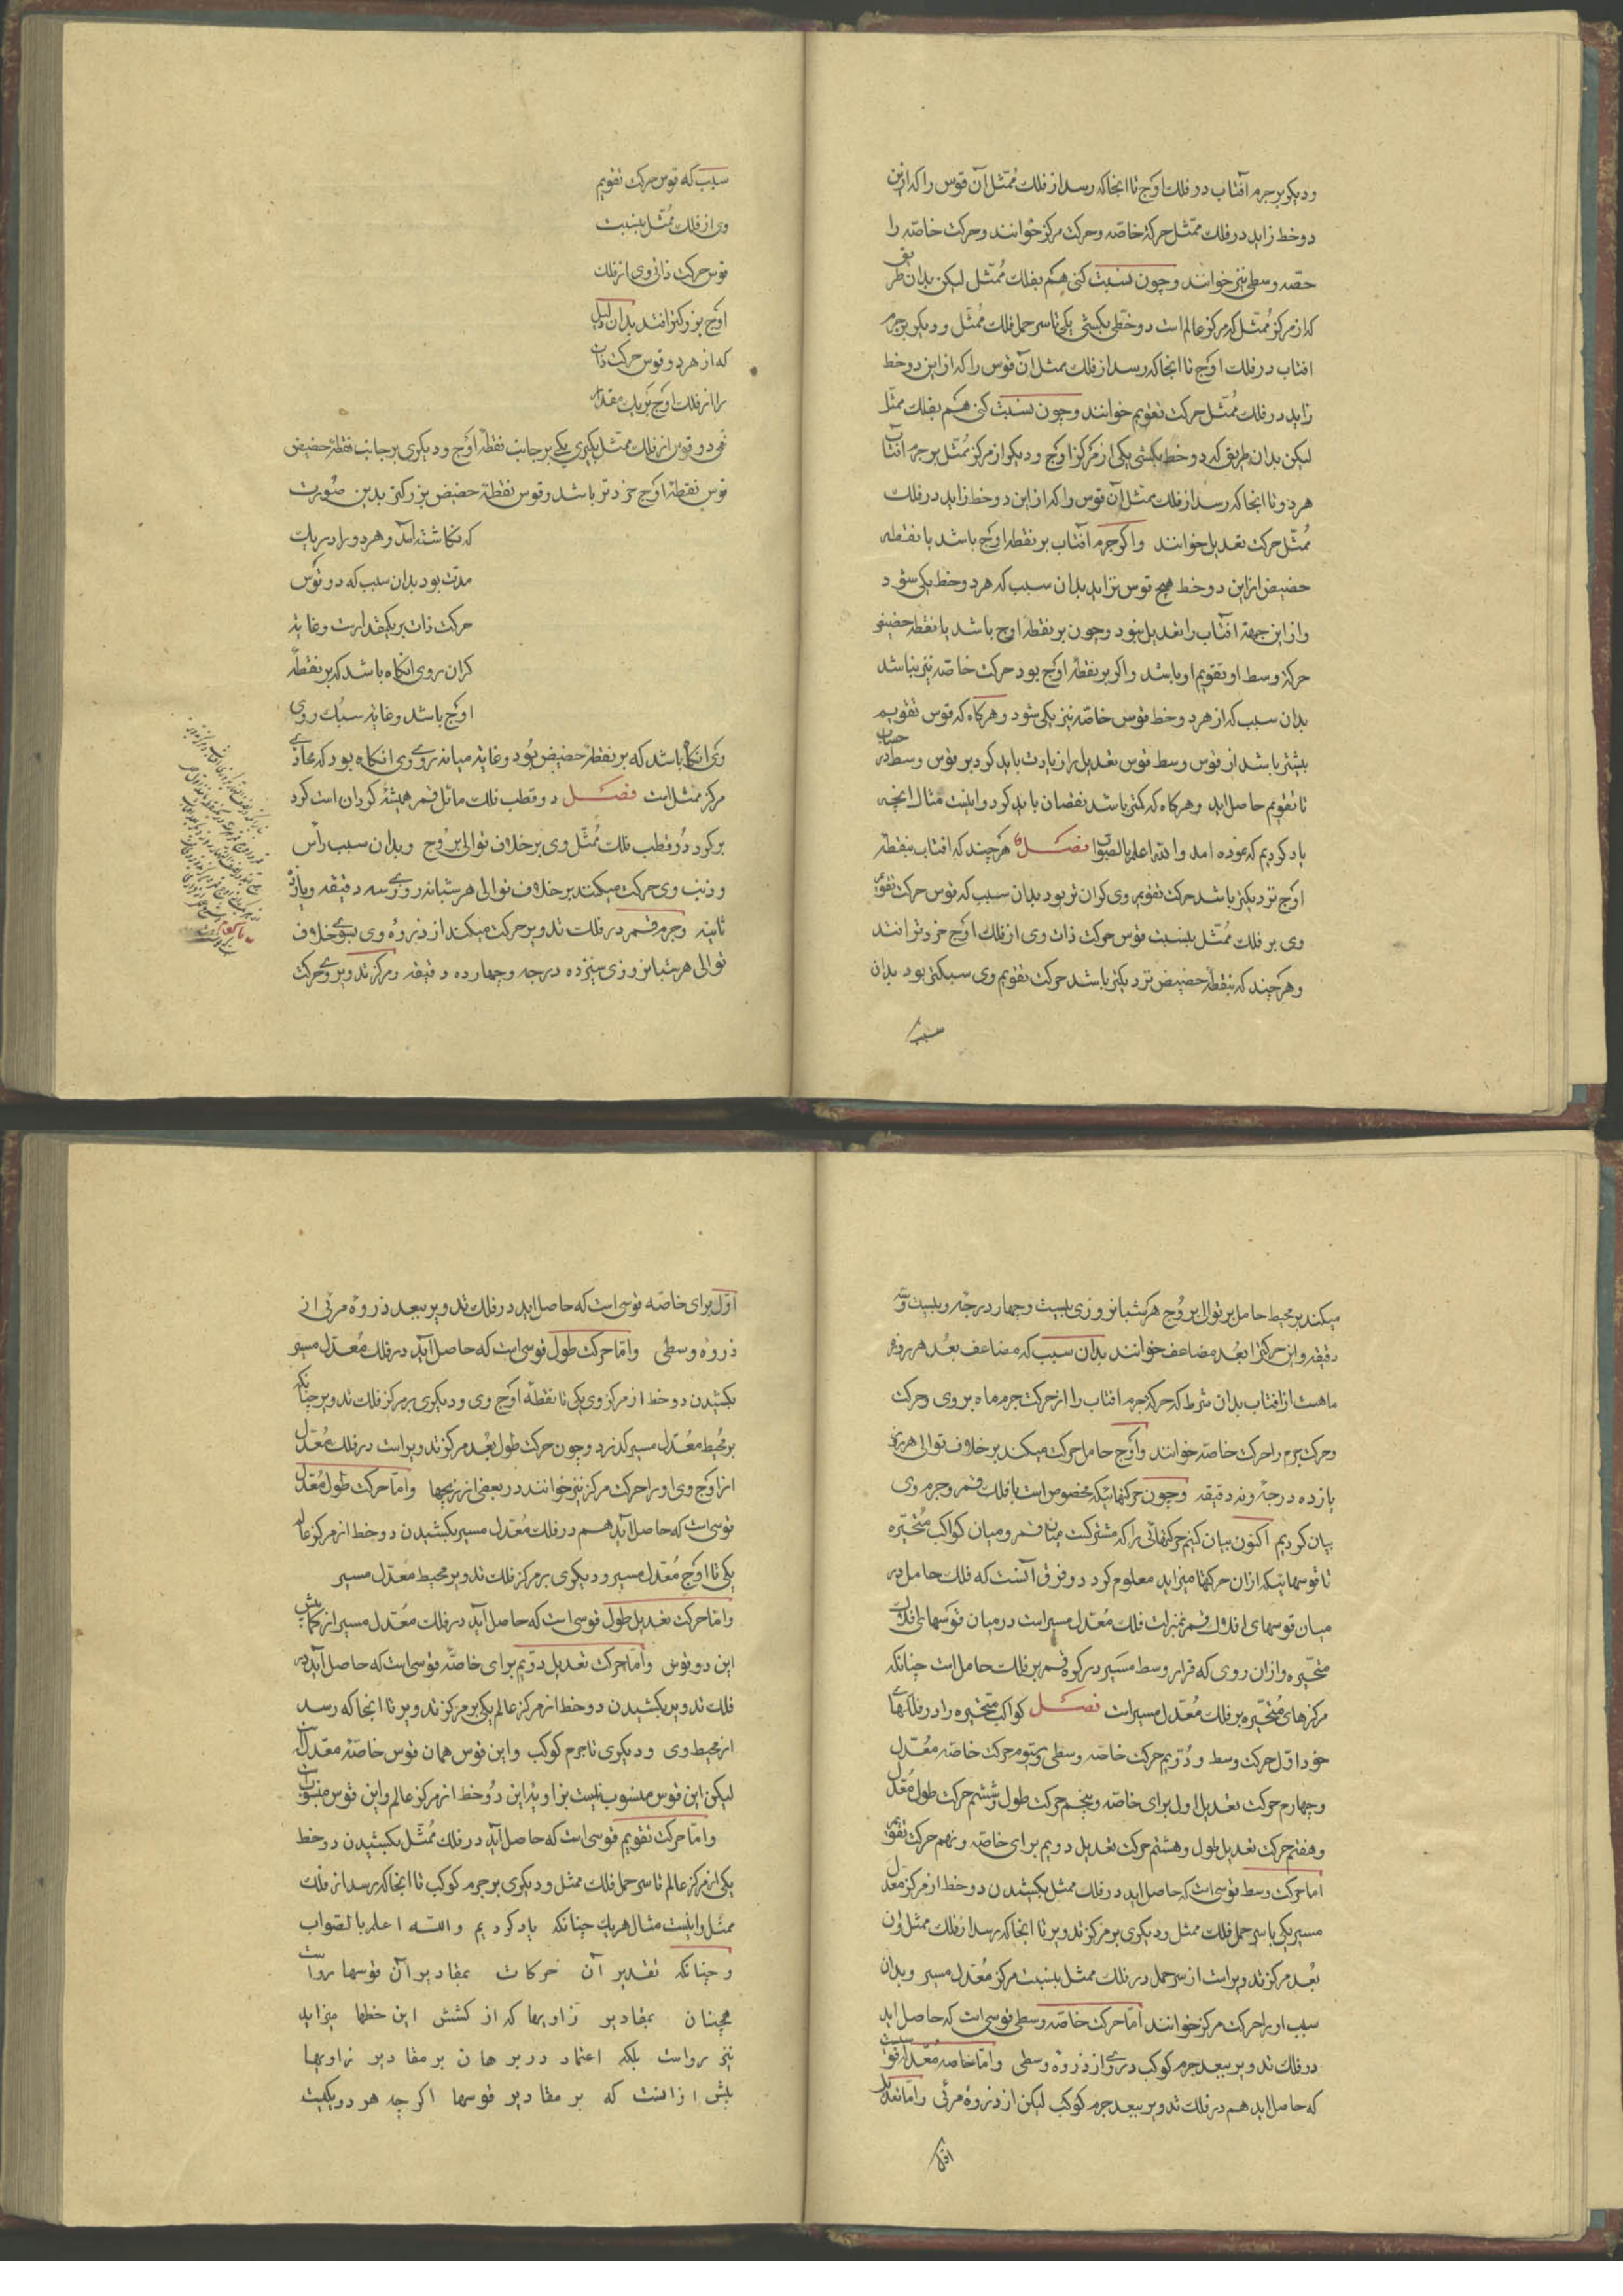 ودیکر بر جرم آفتاب در فلک اوج تا انجا که رسد از فلک مُمثّل آن قوس را که ازین
دو خط زاید در فلک ممثّل حرکة خاصّه وحرکت مرکز خوانند وحرکت خاصّه را
حصّه وسطی نیز خوانند وچون نسبت کنی هم بفلک مُمثّل لیکن بدان طریق
که از مرکز مُمثّل که مرکز عالم است دو خطّ بکشی یکی تا سر حمل فلک مُمثّل ودیکر بر جرم
افتاب در فلک اوج تا انجا که رسد از فلک ممثل آن قوس را که از این دو خط
زاید در فلک مُمثّل حرکت تقویم خوانند وچون نسبت کنی هم بفلک ممثّل
لیکن بدان طریق که دو خط بکشی یکی از مرکز اوج ودیکر از مرکز مُمثّل بر جرم افتاب
هر دو تا انجا که رسد از فلک ممثّل آن قوس را که از این دو خط زاید در فلک
مُمثّل حرکت تعدیل خوانند واکر جرم آفتاب بر نقطه اوج باشد یا نقطه
حضیض از این دو خط هیچ قوس نزاید بدان سبب که هر دو خط یکی شود
واز این جهة افتاب را تعدیل نبود وچون بر نقطه اوج باشد یا نقطه حضیض
حرکة وسط او تقویم او باشد واکر بر نقطه اوج بود حرکت خاصّه نیز نباشد
بدان سبب که از هر دو خط قوس خاصّه نیز یکی شود وهرکاه که قوس تقویم
بیشتر باشد از قوس وسط قوس تعدیل را زیادت باید کرد بر قوس وسط در حساب
تا تقویم حاصل اید وهرکاه که کمتر باشد نقصان باید کرد واینست مثال انچه
یاد کردیم که نموده امد والله اعلم بالصّواب فصل هرچند که افتاب بنقطه
اوج نزدیکتر باشد حرکت تقویم وی کران تر بود بدان سبب که قوس حرکت تقویم
وی بر فلک مُمثّل بنسبت قوس حرکت ذات وی از فلک اوج خردتر افتد
وهرچند که بنقطه حضیض نزدیکتر باشد حرکت تقویم وی سبکتر بود بدان
سبب
سبب که قوس حرکت تقویم
وی از فلک مُمثّل بنسبت
قوس حرکت ذاتی وی از فلک
اوج بزرکتر افتد بدان دلیل
که از هر دو قوس حرکت ذات
را از فلک اوج بریک مقدار
دو قوس از فلک ممثّل بکیری یکی بر جانب نقطه اوج ودیکری بر جانب نقطه حضیض
قوس نقطه اوج خردتر باشد وقوس نقطه حضیض بزرکتر بدین صُورت
که نکاشته آمد وهر دو را در یک
مدّت بود بدان سبب که دو قوس
حرکت ذات بر یکمقدارست وغایة
کران روی انکاه باشد که بر نقطه
اوج باشد وغایة سبُک روی
وی انکاه باشد که بر نقطه حضیض بُود وغایة میانه روی وی انکاه بود که محاذی
مرکز ممثل است فصل دو قطب فلک مائل قمر همیشه کردان است کرد
بر کرد دو قطب فلک مُمثّل وی بر خلاف توالی بروج وبدان سبب راس
وذنب وی حرکت میکند بر خلاف توالی هر شبانه روزی سه دقیقه ویازده
ثانیه وجرم قمر در فلک تدویر حرکت میکند از ذروهٔ وی بسوی خلاف
توالی هر شبانروزی سیزده درجه وچهارده دقیقه ومرکز تدویر وی حرکت
میکند بر محیط حامل بر توالی بروج هر شبانروزی بیست وچهار درجه وبیست وسه
دقیقه واین حرکت را بُعد مضاعف خوانند بدان سبب که مضاعف بعُد هر روزهٔ
ماهست از افتاب بدان شرط که حرکة جرم افتاب را از حرکت جرم ماه بروی وحرکت
وحرکت جرم را حرکت خاصّه خوانند واوج حامل حرکت میکند بر خلاف توالی هر روزی
یازده درجة ونه دقیقه وچون حرکتهائیکه مخصوص است با فلک قمر وجرم وی
بیان کردیم اکنون بیان کنیم حرکتهائی را که مشترکست میان قمر ومیان کواکب مُتحیّره
تا قوسهائیکه از ان حرکتها میزاید معلوم کرد دو فرق آنست که فلک حامل در
میان قوسهای افلاک قمر بمنزلت فلک مُعتدل مسیر است در میان قوسهای افلاک
متحیّره واز ان روی که قرار وسط مسیر در کره قمر بر فلک حامل است چنانکه
مرکزهای مُتحیّره بر فلک مُعتدل مسیر است فصل کواکب متحیّره را در فلکهای
خود اوّل حرکت وسط ودُوّیم حرکت خاصّه وسطی وسیّوم حرکت خاصّه معُدّل
وچهارم حرکت تعدیل اول برای خاصّه وپنجم حرکت طول وششم حرکت طول مُعدّل
وهفتم حرکت تعدیل طول وهشتم حرکت تعدیل دویم برای خاصّه ونهم حرکت تقویم
اما حرکت وسط قوسی است که حاصل اید در فلک ممثل بکشیدن دو خط از مرکز معدّل
مسیر یکی با سر حمل فلک ممثل ودیکری بر مرکز تدویر تا انجا که رسد از فلک ممثل وان
بُعد مرکز تدویر است از سر حمل در فلک ممثل بنسبت مرکز مُعتدل مسیر وبدان
سبب او را حرکت مرکز خوانند امّا حرکت خاصّه وسطی قوسی است که حاصل اید
در فلک تدویر ببعد جرم کوکب در وی از ذروة وسطی وامّا خاصه مُعدّل قوسیست
که حاصل اید هم در فلک تدویر ببعد جرم کوکب لیکن از ذروهٔ مرئی وامّا تعدیل
اوّل
اوّل برای خاصّه قوسی است که حاصل اید در فلک تدویر ببعد ذروهٔ مرئی از
ذروهٔ وسطی وامّا حرکت طول قوسی است که حاصل آید در فلک مُعتدل مسیر
بکشیدن دو خط از مرکز وی یکی تا نقطه اوج وی ودیکری بر مرکز فلک تدویر چنانکه
بر محُیط معُتدل مسیر کذرد وچون حرکت طول بعُد مرکز تدویر است در فلک معُتدل
از اوج وی او را حرکت مرکز نیز خوانند در بعضی از زیجها وامّا حرکت طول مُعدّل
قوسی است که حاصل آید هم در فلک مُعتدل مسیر بکشیدن دو خط از مرکز عالم
یکی تا اوج مُعتدل مسیر ودیکری بر مرکز فلک تدویر محیط معتدل مسیر
وامّا حرکت تعدیل طول قوسی است که حاصل آید در فلک معُتدل مسیر از کمابیش
این دو قوس وامّا حرکت تعدیل دوّیم برای خاصّه قوسی است که حاصل آید در
فلک تدویر بکشیدن دو خط از مرکز عالم یکی بر مرکز تدویر تا انجا که رسد
از محیط وی ودیکری تا جرم کوکب واین قوس همان قوس خاصّهٔ معدّل است
لیکن این قوس منسوب نیست بزاویهٔ این دُو خط از مرکز عالم واین قوس منسوب است
وامّا حرکت تقویم قوسی است که حاصل آید در فلک مُمثّل بکشیدن دو خط
یکی از مرکز عالم تا سر حمل فلک ممثل ودیکری بر جرم کوکب تا انجا که رسد از فلک
ممثّل واینست مثال هر یک چنانکه یاد کردیم والله اعلم بالصّواب
وچنانکه تقدیر آن حرکات بمقادیر آن قوسها رواست
همچنان بمقادیر زاویها که از کشش این خطها میزاید
نیز رواست بلکه اعتماد در برهان بر مقادیر زاویها
بیش از انست که بر مقادیر قوسها اکرچه هر دو یکیست